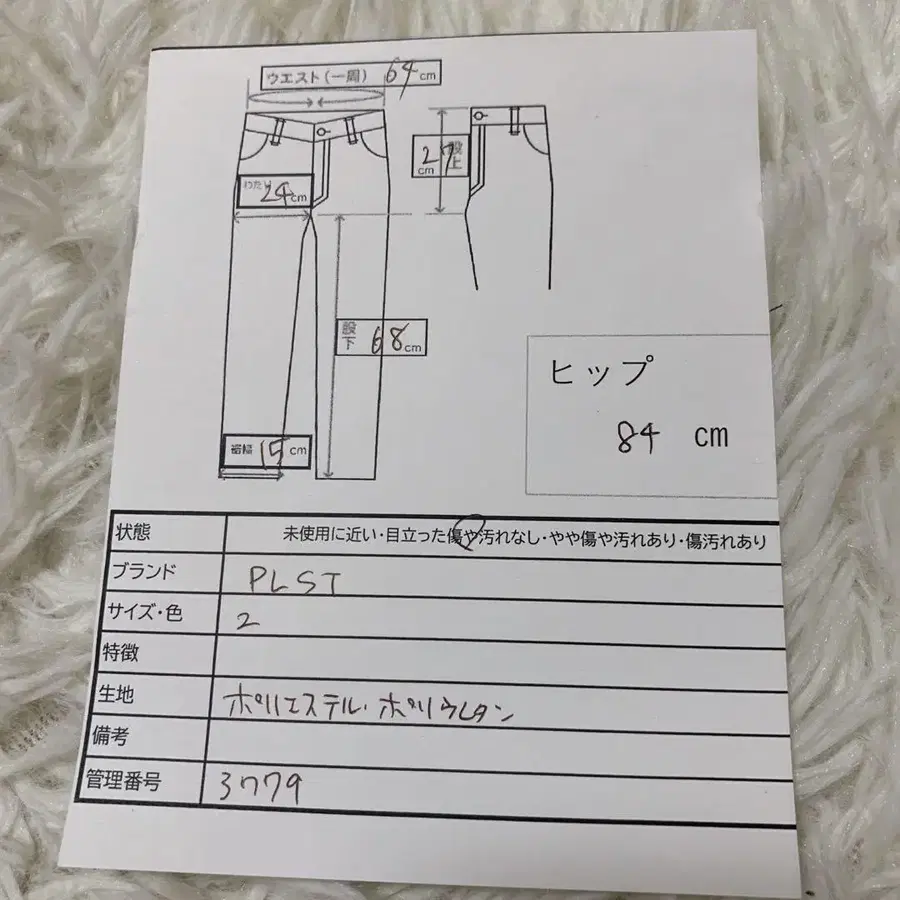 ウエスト(一周) 64cm
27cm 股上
わたり 24cm
股下 68cm
裾幅 15cm
ヒップ
84 cm
状態 未使用に近い・目立った傷や汚れなし・やや傷や汚れあり・傷汚れあり
ブランド PLST
サイズ・色 2
特徴
生地 ポリエステル・ポリウレタン
備考
管理番号 3779